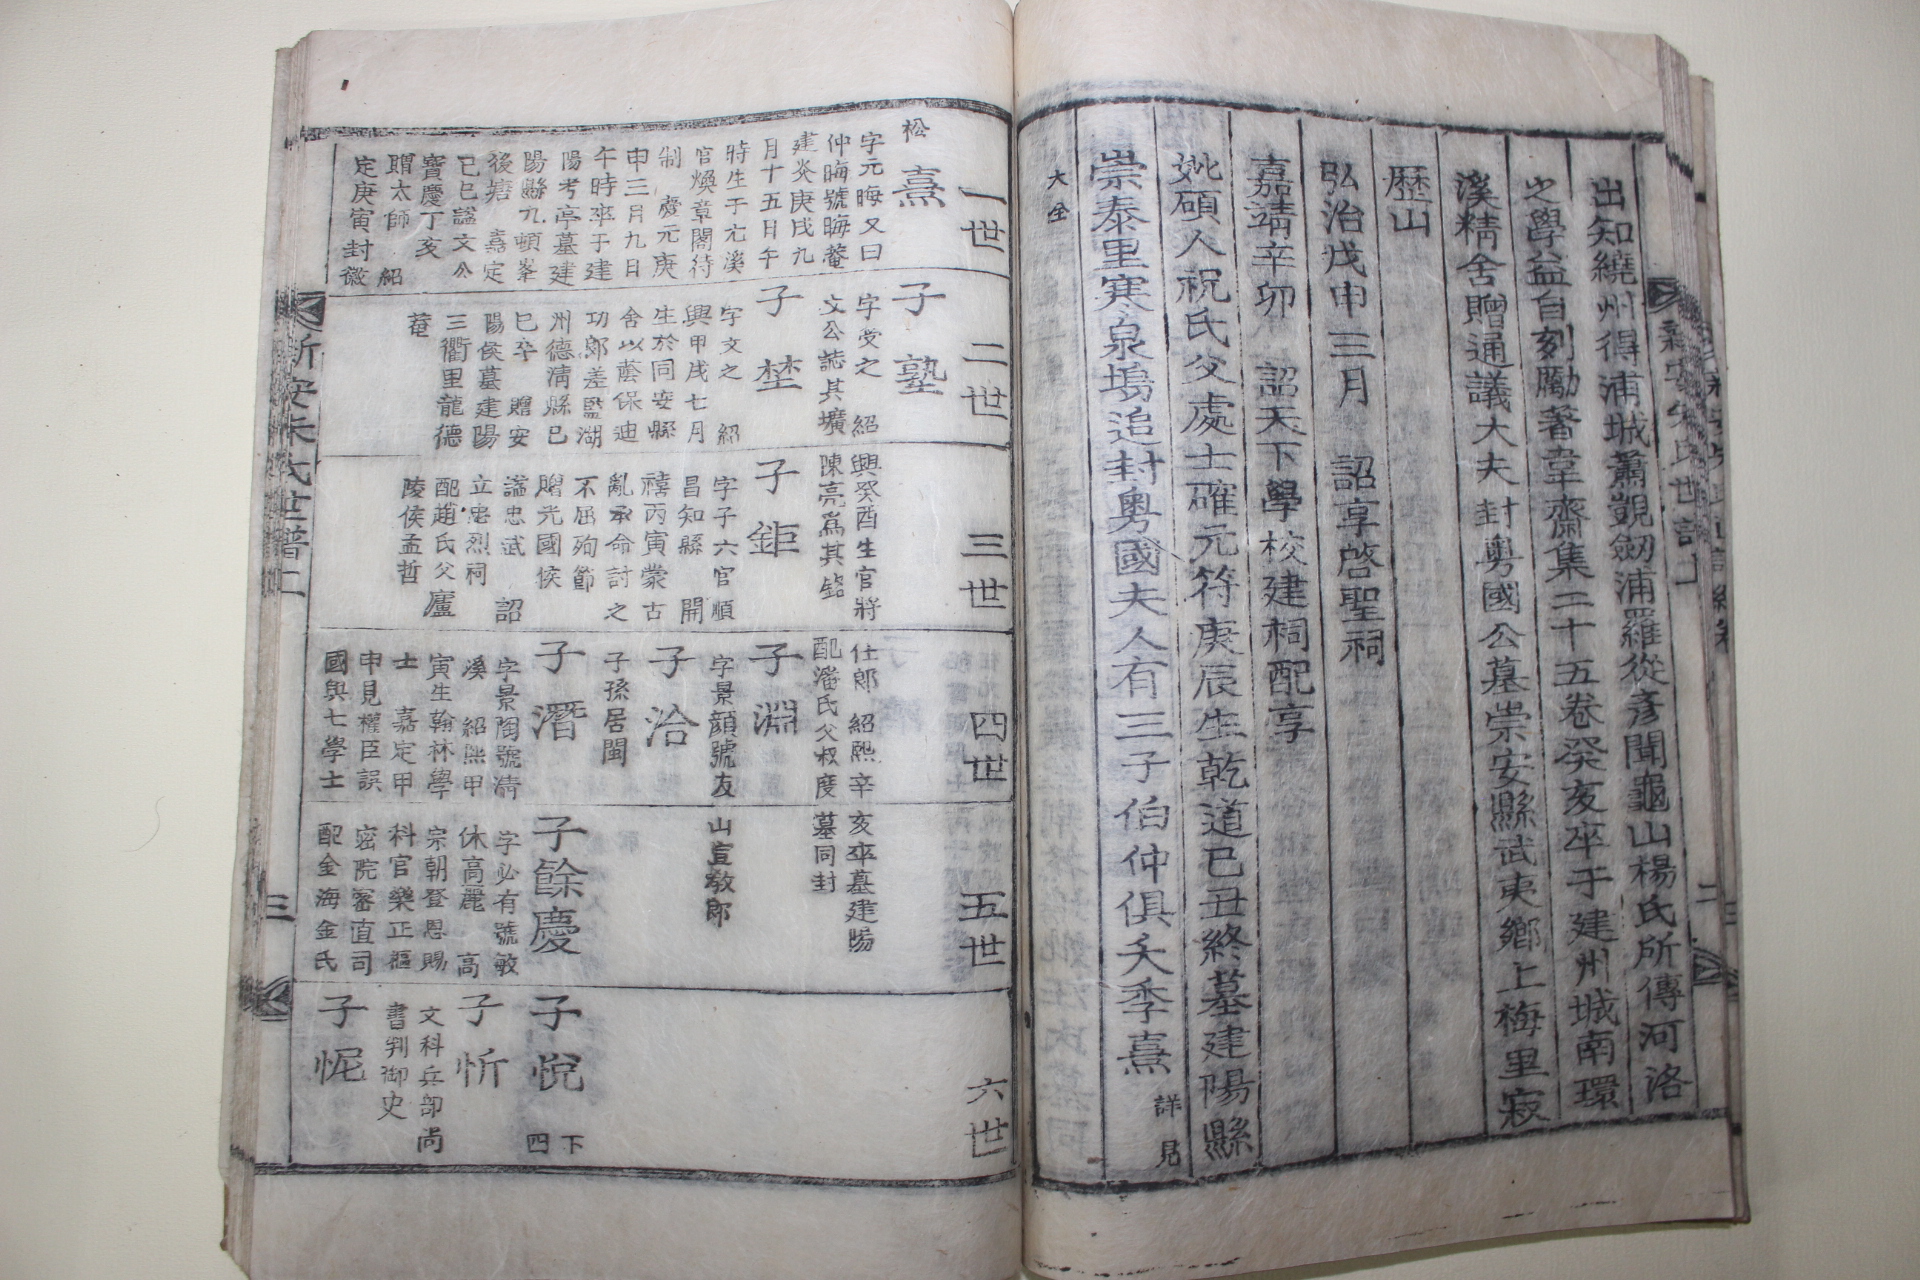 出知繞州得浦城蕭覬劒浦羅從彥聞龜山楊氏所傳河洛
之學益自刻勵著韋齋集二十五卷癸亥卒于建州城南環
溪精舍贈通議大夫封粤國公墓崇安縣武夷鄉上梅里寂
歷山
弘治戊申三月 詔享啓聖祠
嘉靖辛卯 詔天下學校建祠配享
妣碩人祝氏父處士確元符庚辰生乾道己丑終墓建陽縣
崇泰里寒泉塢追封粤國夫人有三子伯仲俱夭季熹 詳見
大全
一世
松
熹
字元晦又曰
仲晦號晦菴
建炎庚戌九
月十五日午
時生于尤溪
官煥章閣待
制 慶元庚
申三月九日
午時卒于建
陽考亭墓建
陽縣九頓峯
後塘 嘉定
己巳謚文公
寶慶丁亥
贈太師 紹
定庚寅封徽
二世
子塾
字受之 紹
文公誌其壙
子埜
字文之 紹
興甲戌七月
生於同安縣
舍以蔭保迪
功郞差監湖
州德淸縣己
巳卒 贈安
陽侯墓建陽
三衢里龍德
菴
三世
興癸酉生官將
陳亮爲其銘
子鉅
字子六官順
昌知縣 開
禧丙寅蒙古
亂承命討之
不屈殉節
贈光國侯
謚忠武 詔
立忠烈祠
配趙氏父廬
陵侯孟哲
四世
仕郞 紹熙辛
配潘氏父叔度
子淵
字景顔號友
子洽
子孫居閩
子潛
字景陶號淸
溪 紹熙甲
寅生翰林學
士 嘉定甲
申見權臣誤
國與七學士
五世
亥卒墓建陽
墓同封
山宣敎郞
子餘慶
字必有號敏
休高麗 高
宗朝登恩賜
科官樂正樞
密院審直司
配金海金氏
六世
子悅
下四
子忻
文科兵部尙
書判御史
子怩
新安朱氏世譜二
三